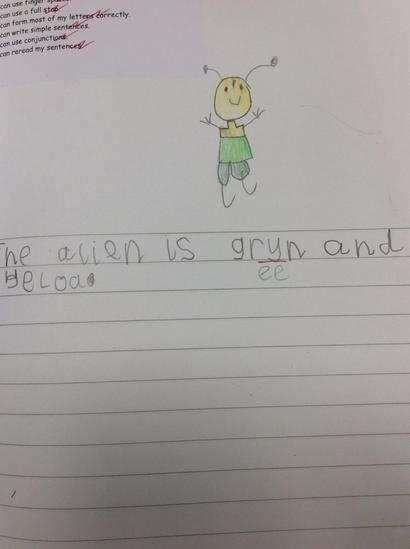 can use finger
can use a full stop.
can form most of my letters correctly.
can write simple sentences.
can use conjunctions.
can reread my sentences.
The alien is gryn and
ee
yeloa.